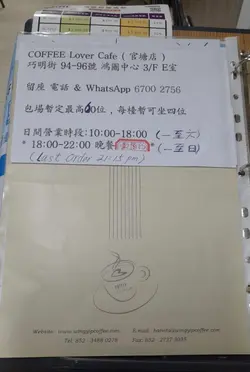 COFFEE Lover Cafe ( 官塘店 )
巧明街 94-96號 鴻圖中心 3/F E室
留座 電話 & WhatsApp 6700 2756
包場暫定最高60位，每檯暫可坐四位
日間營業時段:10:00-18:00 (一至六)
*18:00-22:00 晚餐 * (一至日)
(Last Order 21:15 pm)
Website:
E-mail:
Tel: 852
Fax: 852